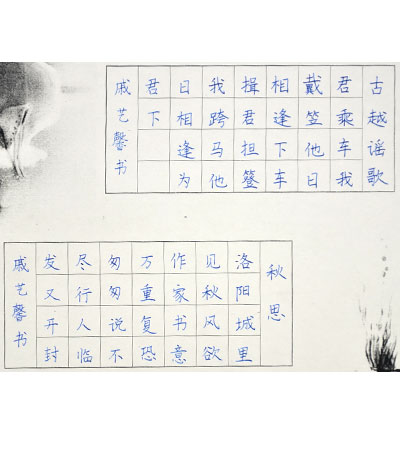 古越谣歌
君乘车我
戴笠他日
相逢下车
揖君担簦
我跨马他
日相逢为
君下
戚艺馨书
秋思
洛阳城里
见秋风欲
作家书意
万重复恐
匆匆说不
尽行人临
发又开封
戚艺馨书